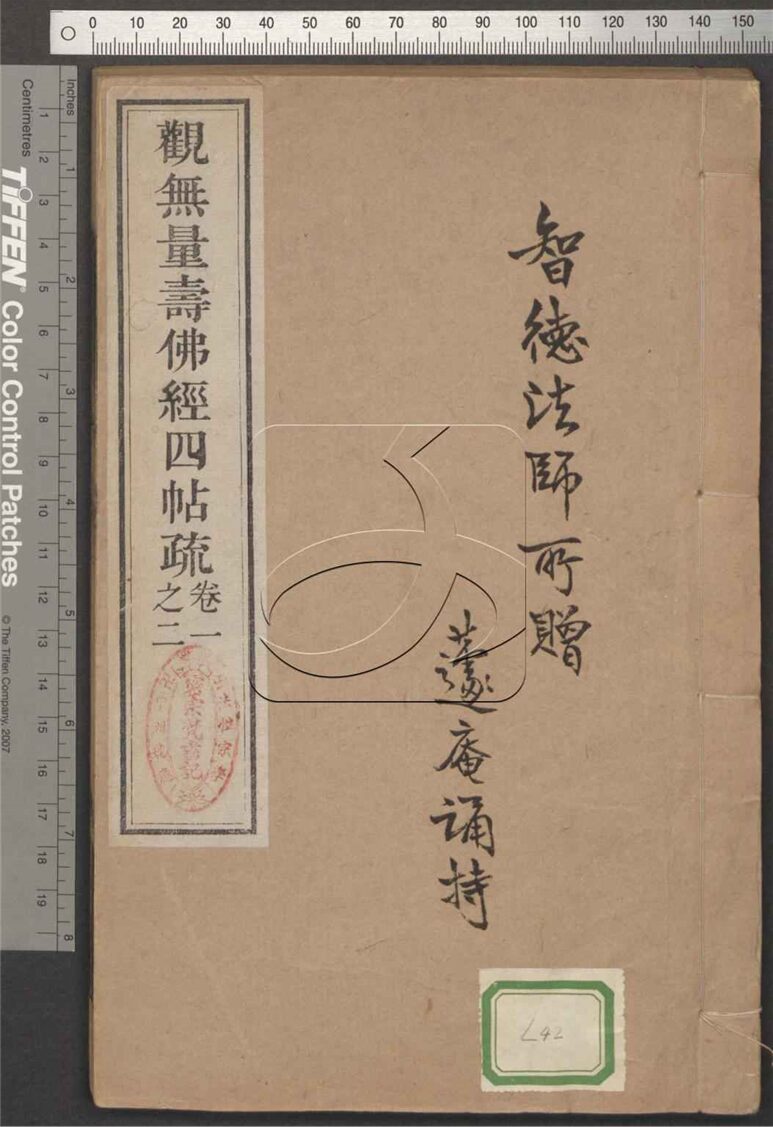 0 10 20 30 40 50 60 70 80 90 100 110 120 130 140 150
Inches
1 2 3 4 5 6 7 8
Centimetres
1 2 3 4 5 6 7 8 9 10 11 12 13 14 15 16 17 18 19
TIFFEN® Color Control Patches
© The Tiffen Company, 2007
智德法師所贈
蘧庵誦持
觀無量壽佛經四帖疏
卷一
之二
L42